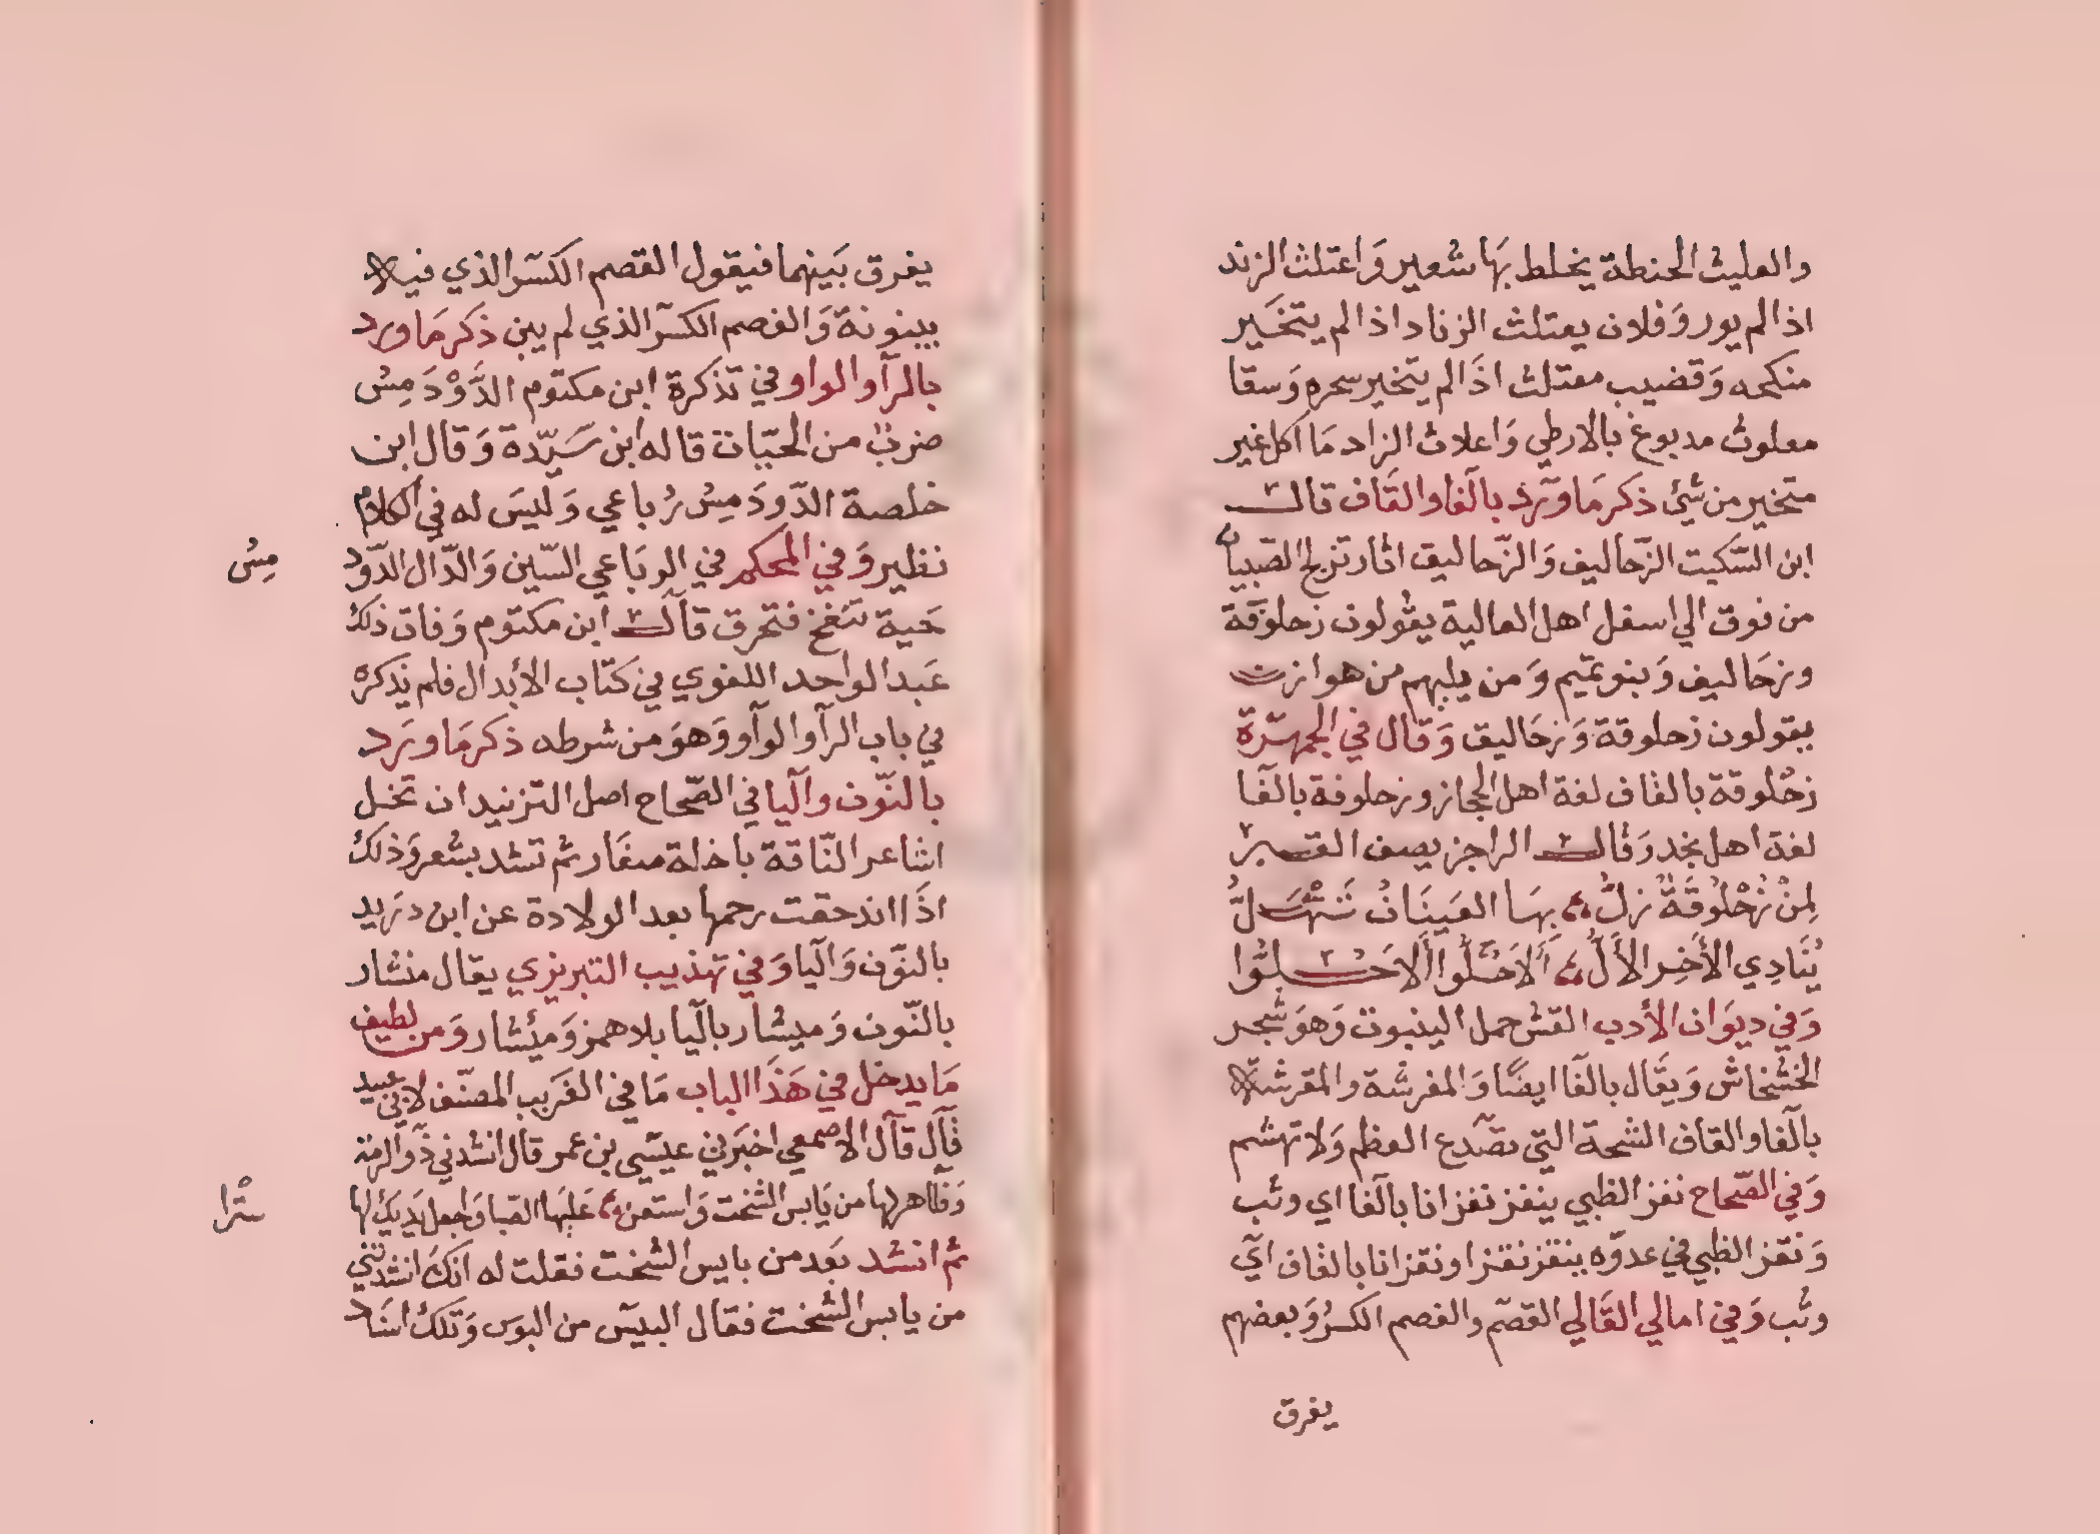 والعليث الحنطة يخلط بَهَا شعير وَاعتلث الزند
اذا لم يور وَفلان يعتلث الزناد اذا لم يتخَير
منكحه وَقضيب معتلث اذَا لم يتخير سحره وَسقا
معلوث مدبوغ بالارطي وَاعلاث الزاد مَا اكل غير
متخير من شئ ذكر مَا وَرد بالفا والقَاف قال
ابن السّكيت الزّحاليف وَالزّحاليق اثار تزلج الصّبيان
من فوق الي اسفل اهل العالية يقولون زحلوفة
وزحَاليف وَبنو تميم وَمن يليهم من هوازن
يقولون زحلوقة وَزحَاليق وَقال في الجمهَرة
زحْلوقة بالقاف لغة اهل الحجاز وزحلوفة بالفَا
لغة اهل نجد وَقال الراجز يصف القبر
لِمنْ زُحْلُوقَةٌ زلُّ بهَا العَينَانُ تَنْهَلُّ
يُنَادِي الأخِر الألُّ ألاَحُلُّوا ألاَحُلُّوا
وَفي ديوَان الأدب القش حمل الينبوت وَهوَ شجر
الخشخاش وَيقَال بالفا ايضًا وَالمفرشة والمقرشة
بالفا والقاف الشجة التي تصَدع العظم وَلا تهشم
وَفي الصّحاح نفز الظبي ينفز نفزانا بالفا اي وثب
وَنقز الظبي في عدوّه ينقز نقزا ونقزانا بالقاف اي
وثب وَفي امالي القَالي القصم والفصم الكسرُ وَبعضهم
يفرق
يفرق بَينهما فيقول القصم الكسر الذي فيه
بينونة وَالفصم الكسر الذي لم يبن ذكر مَا ورد
بالرا والواو في تذكرة ابن مكتوم الدَّوْدَمِسُ
ضربٌ من الحيّات قاله ابن سَيّدة وَقال ابن
خلصة الدّودَمِسُ رُباعي وَليسَ له في الكلام
نظير وَفي المحكم في الرباعي السّين وَالدّال الدّود
مِسُ
حَية تنفخ فتحرق قال ابن مكتوم وَفات ذلك
عَبد الواحد اللغوي في كتاب الأبدال فلم يَذكره
في باب الرا والواو وَهوَ من شرطه ذكر مَا وَرَد
بالنّون واليا في الصّحاح اصل التزنيد ان تخل
اشاعر النّاقة باخلة صغَار ثم تشد بشعر وَذلك
اذَا اندحقت رحمها بعد الولادة عن ابن دريد
بالنوّن وَاليا وَفي تهذيب التبريزي يقال منشار
بالنّون وَميشار باليا بلا همز وَمئشار وَمن لطيف
مَا يدخل في هَذَا الباب مَا في الغَريب المصنّف لابي عبيد
قَال قال الاصمعي اخبَرني عيسَي بن عمر قال انشدني ذو الرمة
وَظاهر لها من يَابس الشخت وَاستعن عَليَها الصبا وَاجعل يَديك لها
سترا
ثم انشد بَعد من بايس الشخت فقلت له انكَ انشدتني
من يابس الشخت فقال البيَس من البوس وَتلك اسنَاد